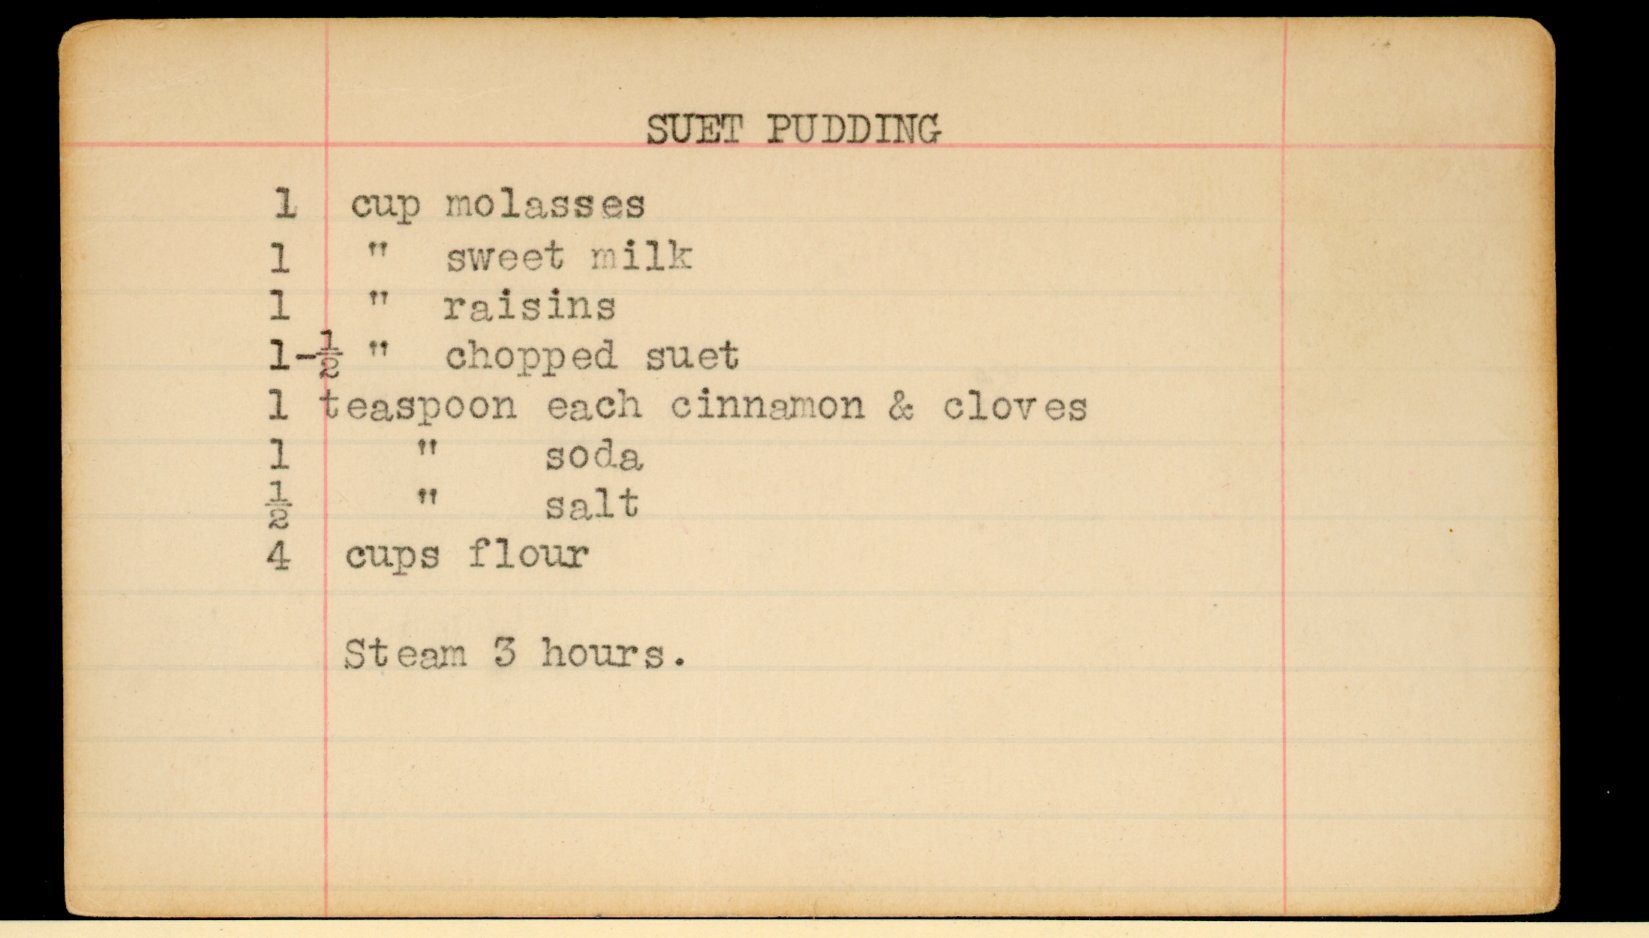 SUET PUDDING
1 cup molasses
1 " sweet milk
1 " raisins
1-½ " chopped suet
1 teaspoon each cinnamon & cloves
1 " soda
½ " salt
4 cups flour
Steam 3 hours.